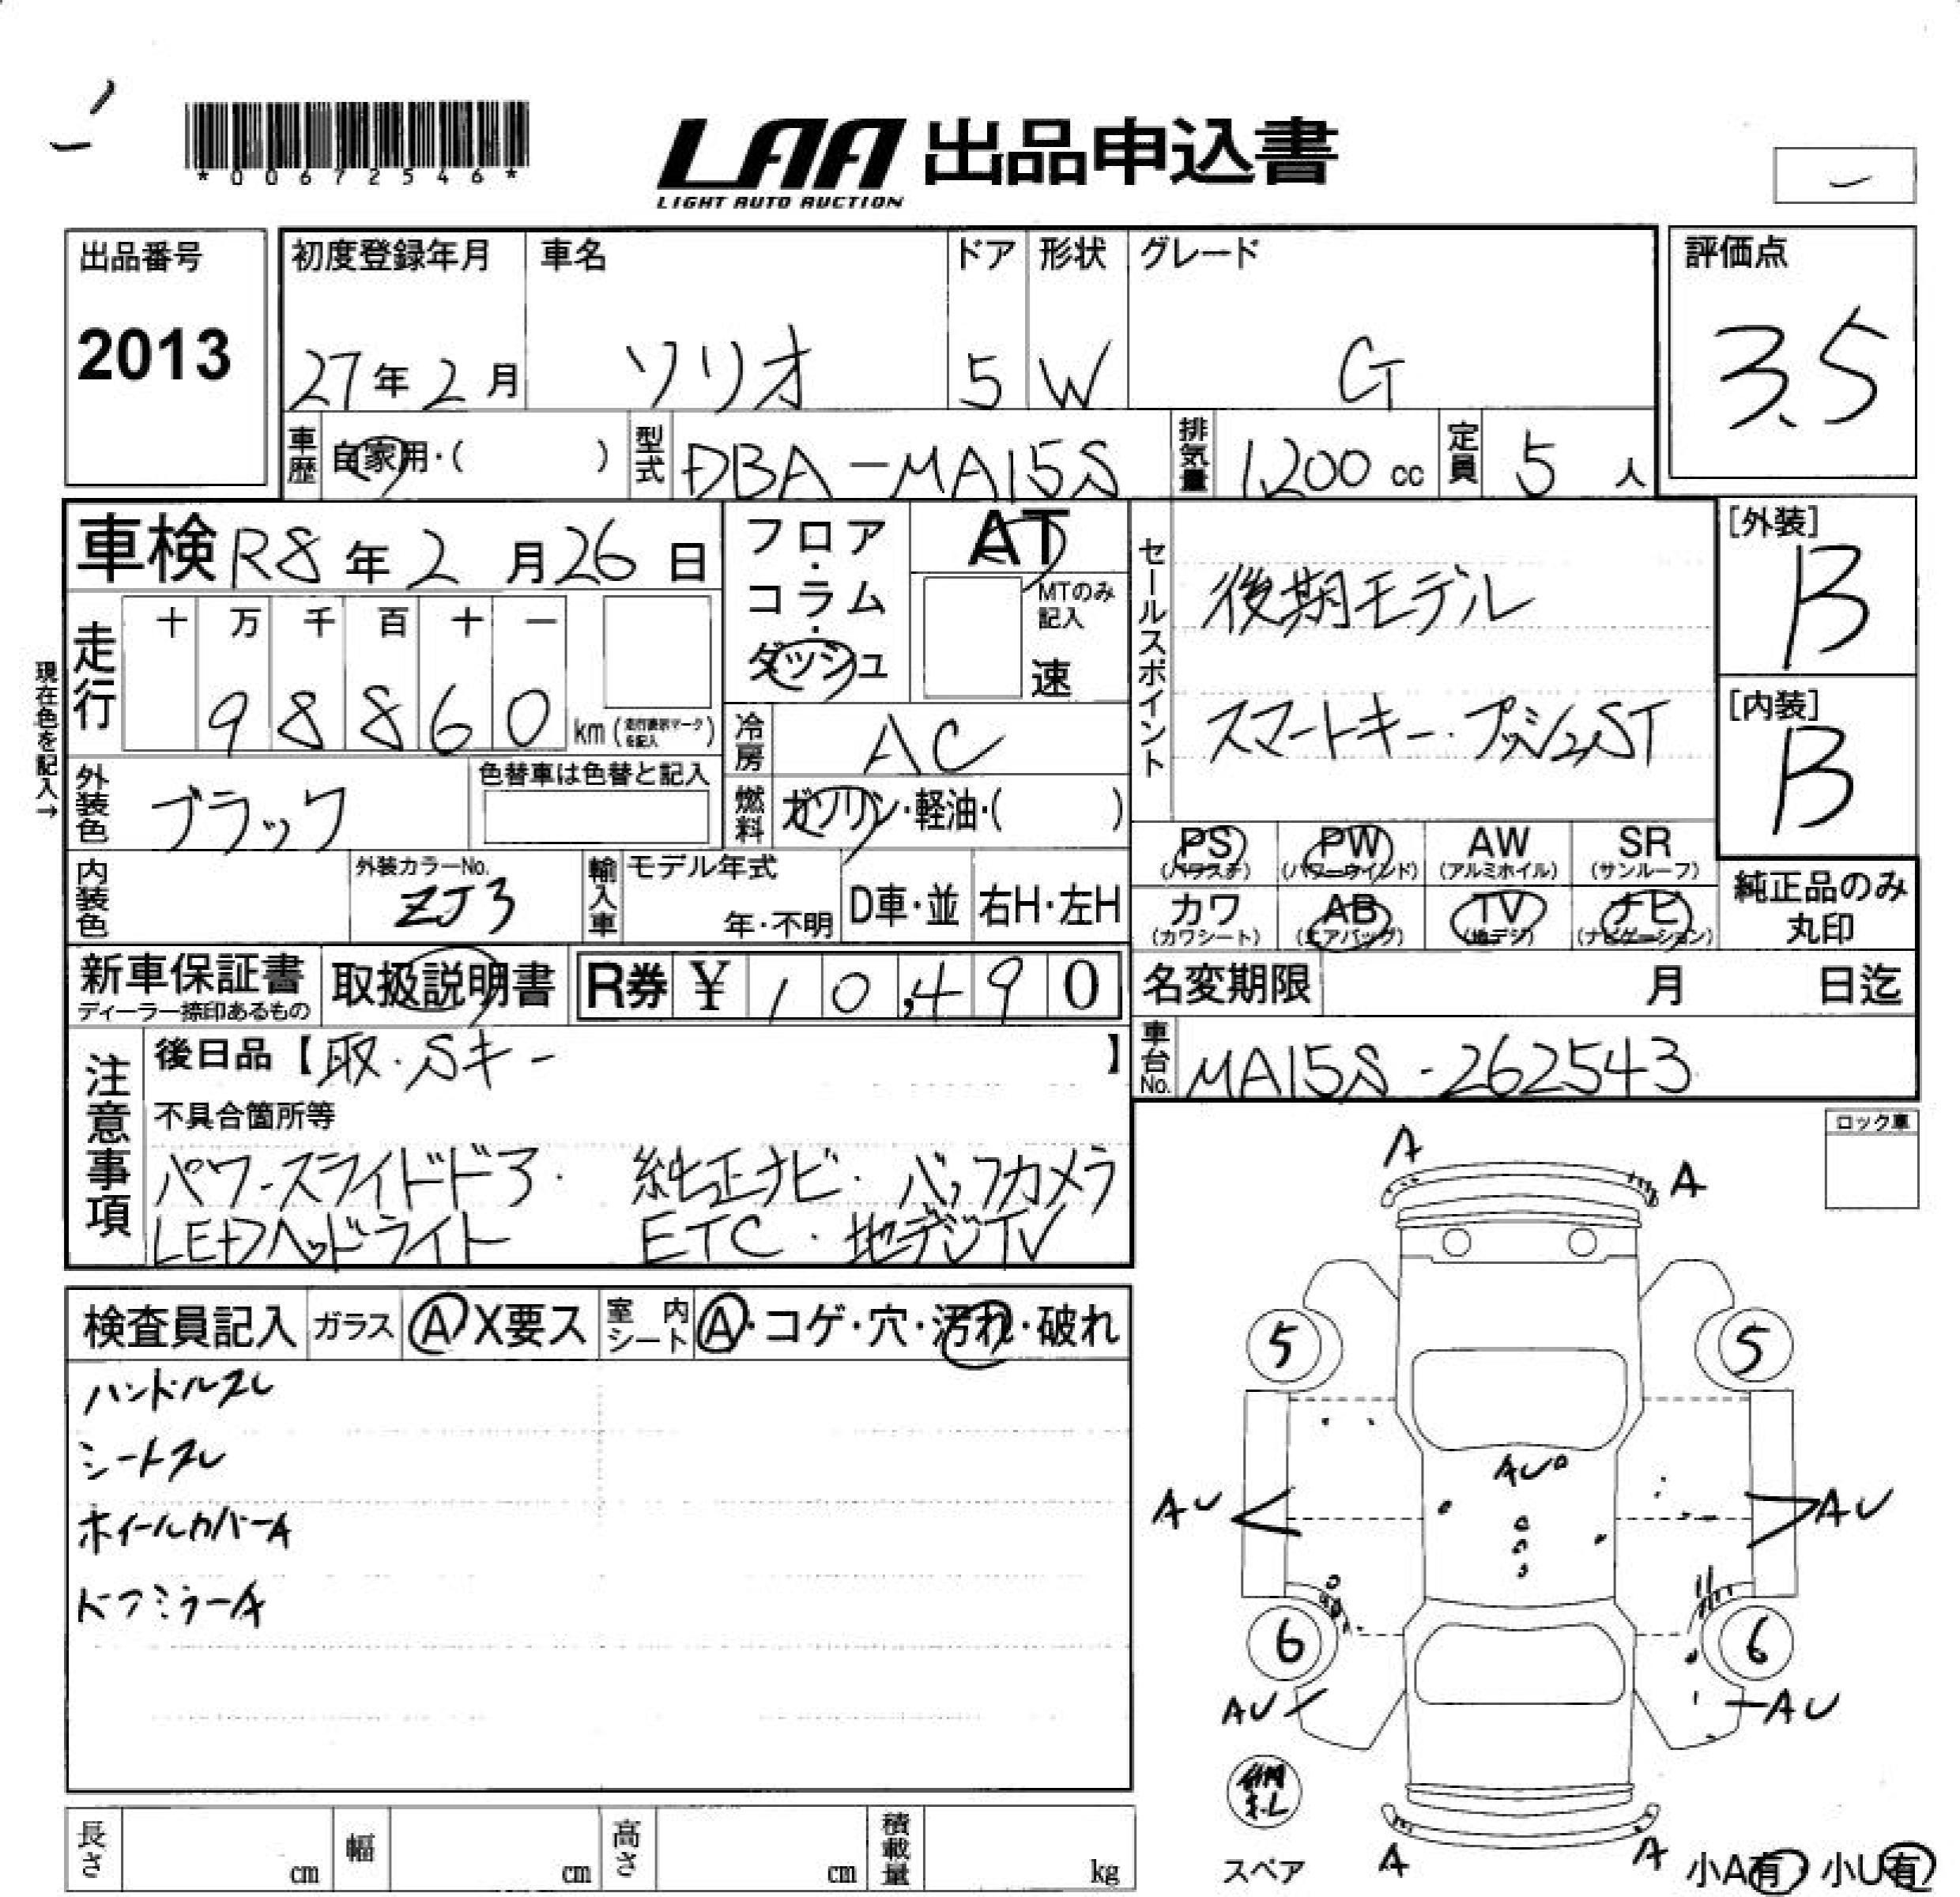 *00672546*
LAA 出品申込書
LIGHT AUTO AUCTION
出品番号 2013
初度登録年月 27年2月
車名 ソリオ
ドア 5
形状 W
グレード G
評価点 3.5
車歴 自家用・( )
型式 DBA-MA15S
排気量 1,200 cc
定員 5 人
車検 R8年2月26日
フロア・コラム・ダッシュ
AT
MTのみ記入
速
セールスポイント
後期モデル
スマートキー・プッシュST
[外装] B
[内装] B
現在色を記入→
走行 十万千百十一
98860 km (走行表示マークを記入)
冷房 AC
燃料 ガソリン・軽油・( )
外装色 ブラック
色替車は色替と記入
内装色
外装カラーNo. ZJ3
輸入車 モデル年式 年・不明
D車・並 右H・左H
PS (パワステ) PW (パワーウインド) AW (アルミホイル) SR (サンルーフ)
カワ (カワシート) AB (エアバッグ) TV (地デジ) ナビ (ナビゲーション)
純正品のみ丸印
新車保証書 ディーラー捺印あるもの
取扱説明書
R券 ¥ 10,490
名変期限 月 日迄
車台No. MA15S-262543
注意事項
後日品【取・Sキー 】
不具合箇所等
パワースライドドア・ 純正ナビ・バックカメラ
LEDヘッドライト ETC・地デジTV
ロック車
検査員記入 ガラス A X要ス 室内シート A・コゲ・穴・汚れ・破れ
ハンドルスレ
シートスレ
ホイールカバーA
ドアミラーA
A
A
5 5
AU
AU AU
6 6
AU AU
スペア
A A
小A有 小U有
長さ cm 幅 cm 高さ cm 積載量 kg